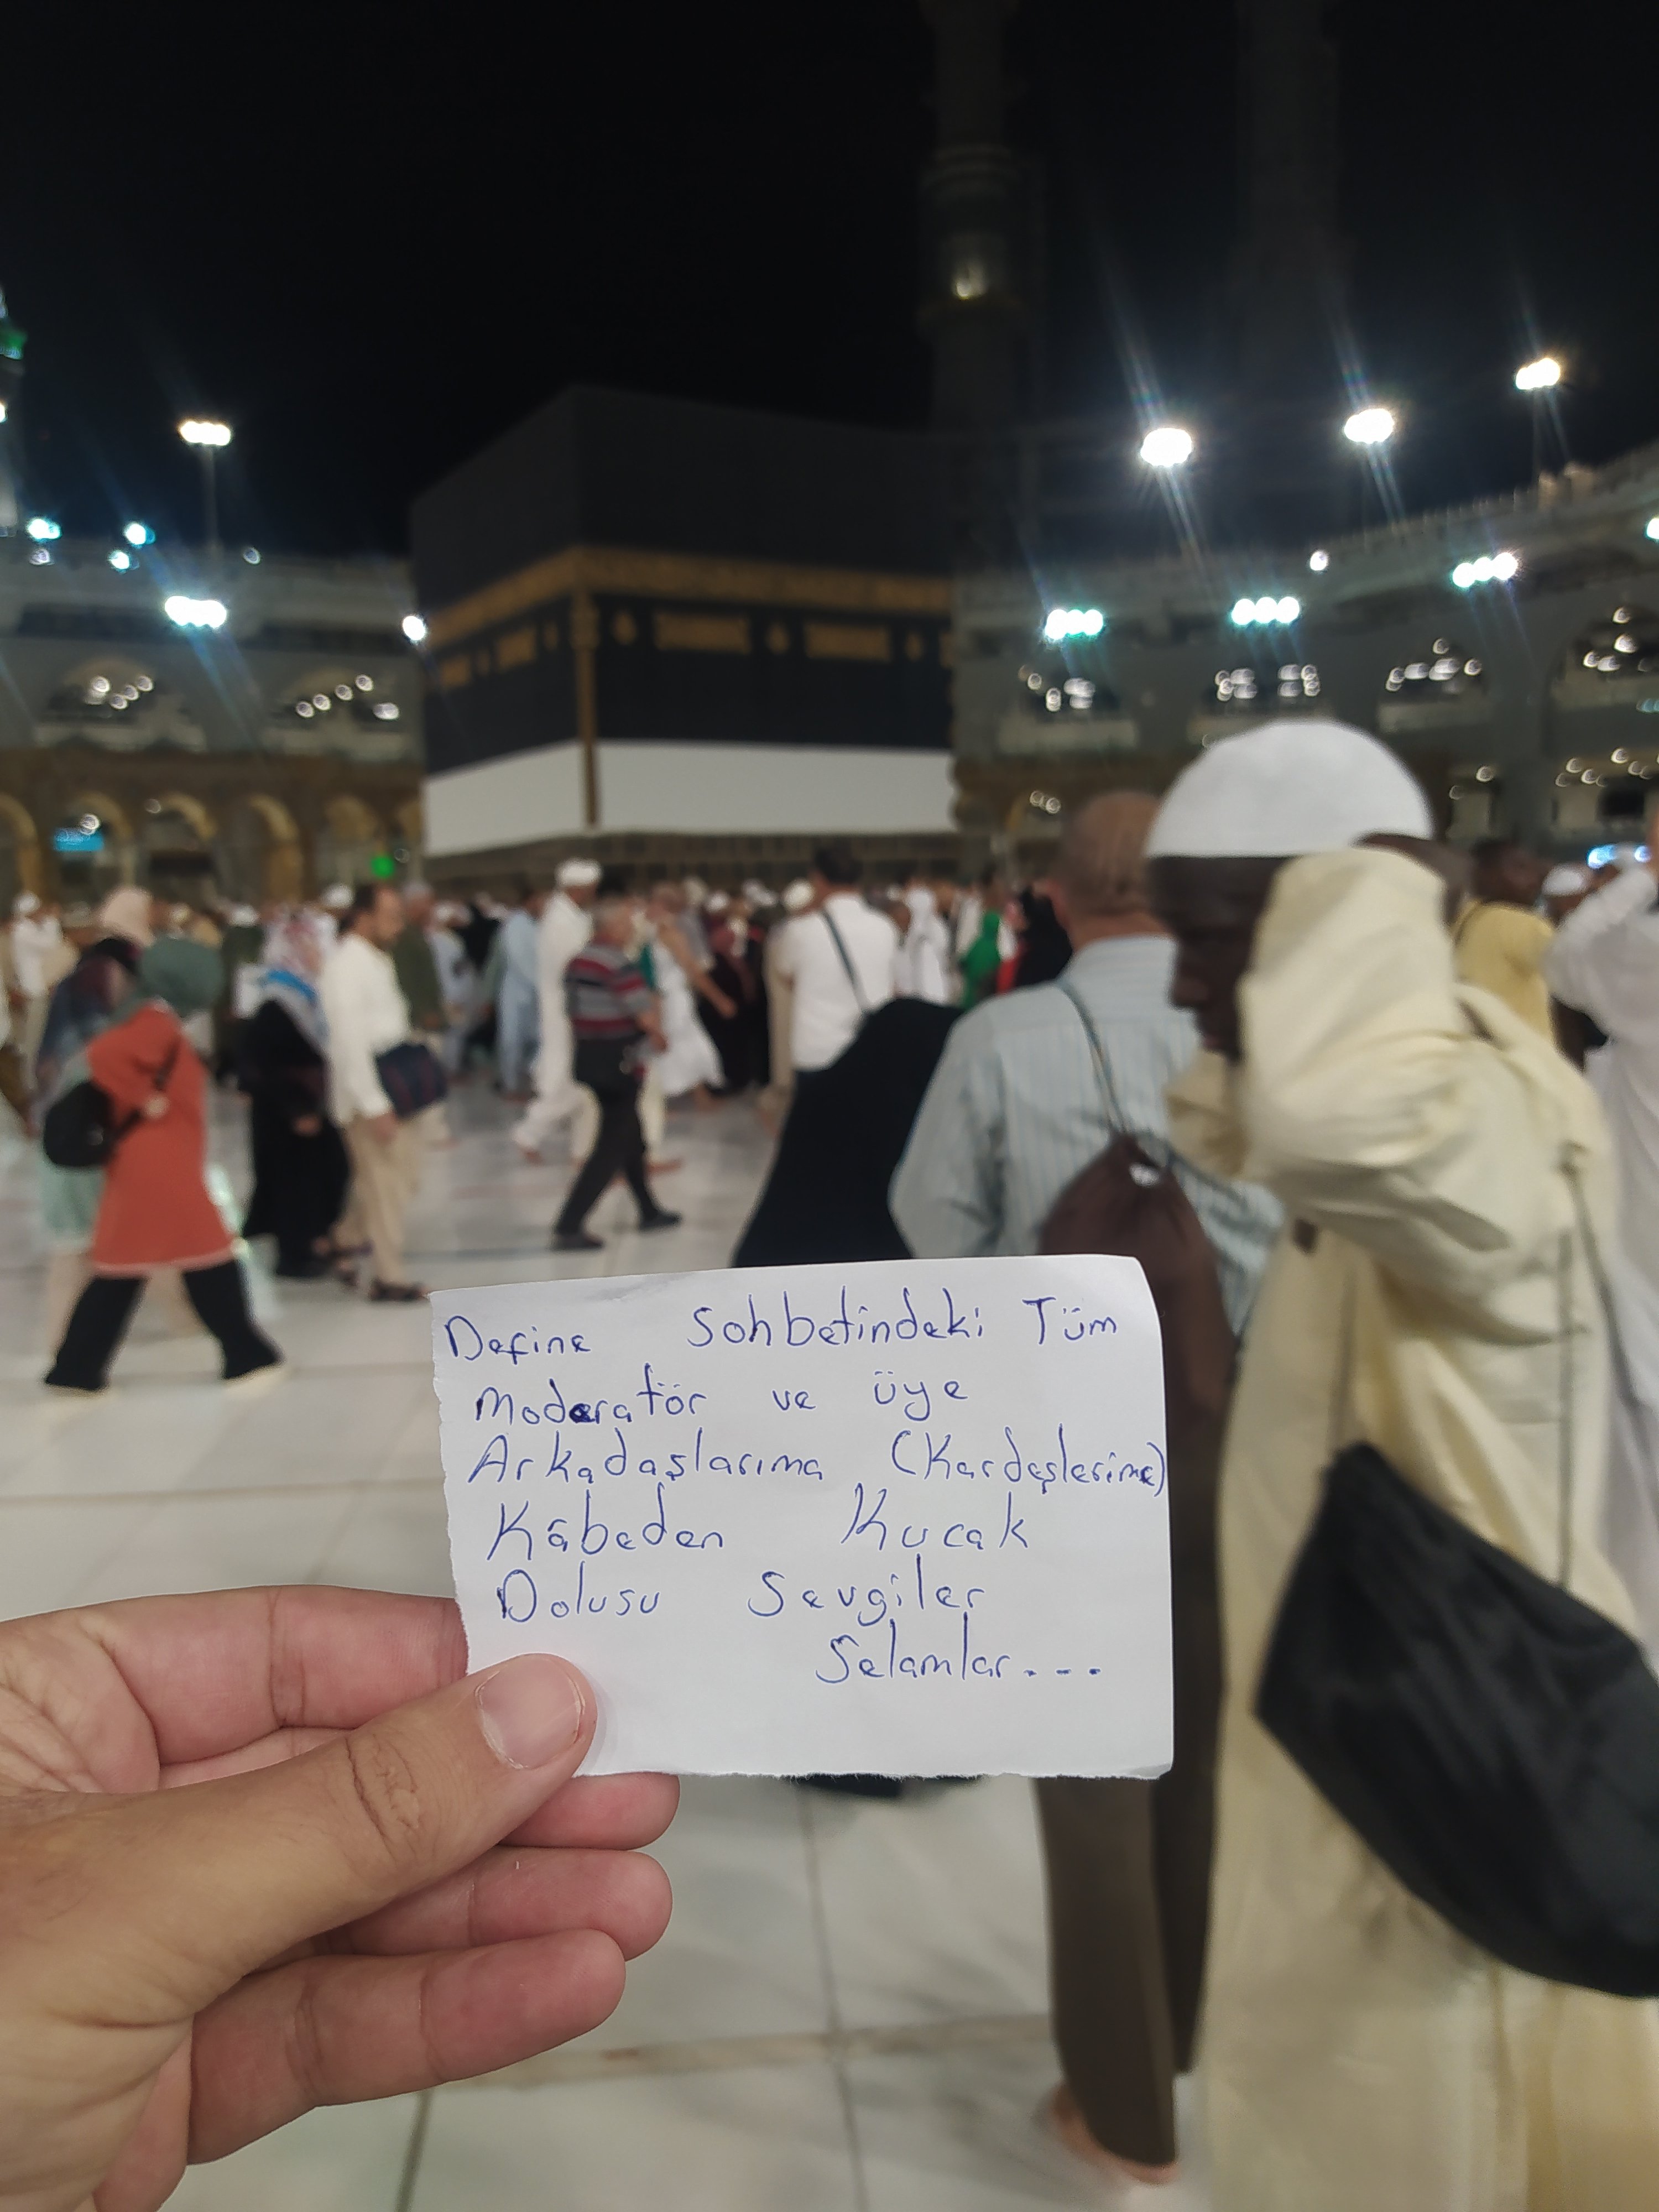 Define Sohbetindeki Tüm
Moderatör ve üye
Arkadaşlarıma (Kardeşlerime)
Kâbeden Kucak
Dolusu Sevgiler
Selamlar...